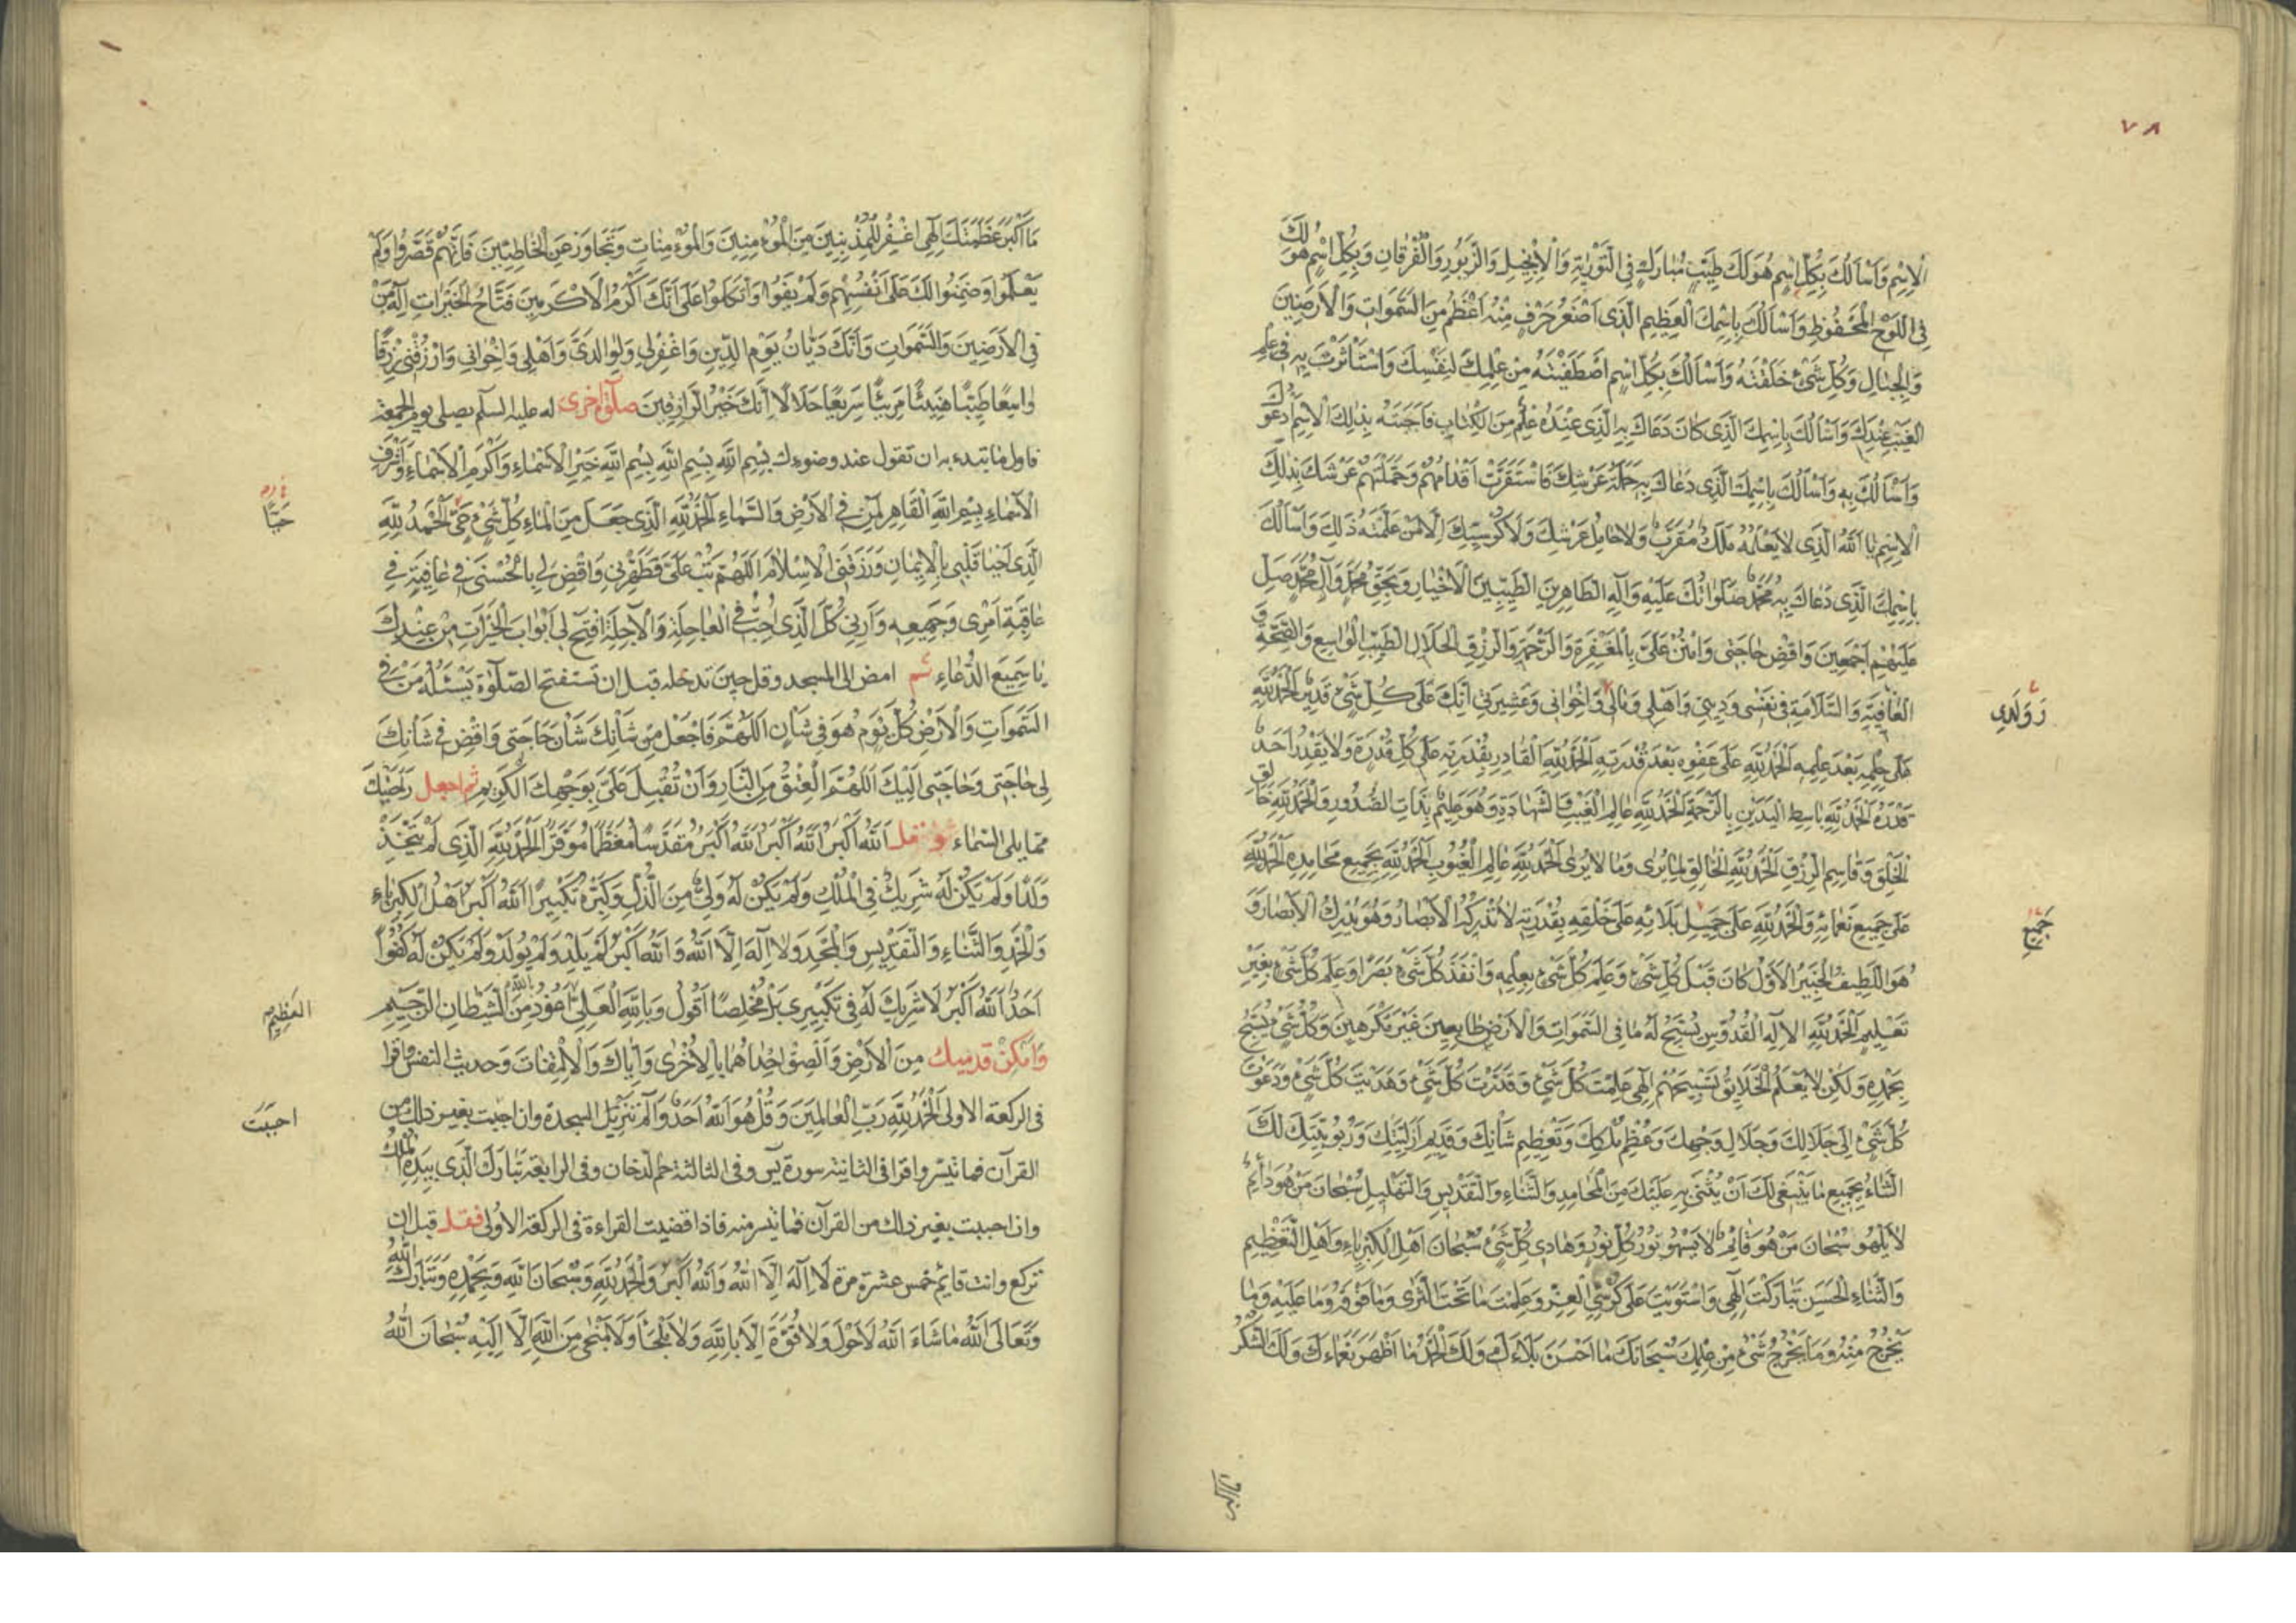 ٧٨
الاِسْمِ وَاَسْاَلُكَ بِكُلِّ اِسْمٍ هُوَ لَكَ طَيِّبٍ مُبَارَكٍ فِي التَّوْرٰيةِ وَالْاِنْجِيلِ وَالزَّبُورِ وَالْفُرْقَانِ وَبِكُلِّ اسْمٍ هُوَ لَكَ
فِي اللَّوْحِ الْمَحْفُوظِ وَاَسْاَلُكَ بِاسْمِكَ الْعَظِيمِ الَّذِى اَصْغَرُ حَرْفٍ مِنْهُ اَعْظَمُ مِنَ السَّمَوَاتِ وَالْاَرَضِينَ
وَالْجِبَالِ وَكُلِّ شَيْءٍ خَلَقْتَهُ وَاَسْاَلُكَ بِكُلِّ اسْمٍ اصْطَفَيْتَهُ مِنْ عِلْمِكَ لِنَفْسِكَ وَاسْتَاْثَرْتَ بِهِ فِى عِلْمِ
الْغَيْبِ عِنْدَكَ وَاَسْاَلُكَ بِاسْمِكَ الَّذِى كَانَ دَعَاكَ بِهِ الَّذِى عِنْدَهُ عِلْمٌ مِنَ الْكِتَابِ فَاَجَبْتَهُ بِذٰلِكَ الْاِسْمِ اَدْعُوكَ
وَاَسْاَلُكَ بِهِ وَاَسْاَلُكَ بِاسْمِكَ الَّذِى دَعَاكَ بِهِ حَمَلَةُ عَرْشِكَ فَاسْتَقَرَّتْ اَقْدَامُهُمْ وَحَمَّلْتَهُمْ عَرْشَكَ بِذٰلِكَ
الْاِسْمِ يَا اَللّٰهُ الَّذِى لَا يَعْلَمُهُ مَلَكٌ مُقَرَّبٌ وَلَا حَامِلُ عَرْشِكَ وَلَا كُرْسِيِّكَ اِلَّا مَنْ عَلَّمْتَهُ ذٰلِكَ وَاَسْاَلُكَ
بِاسْمِكَ الَّذِى دَعَاكَ بِهِ مُحَمَّدٌ صَلَوَاتُكَ عَلَيْهِ وَآلِهِ الطَّاهِرِينَ الطَّيِّبِينَ الْاَخْيَارِ وَبِحَقِّ مُحَمَّدٍ وَآلِ مُحَمَّدٍ صَلِّ
عَلَيْهِمْ اَجْمَعِينَ وَاقْضِ حَاجَتِى وَامْنُنْ عَلَىَّ بِالْمَغْفِرَةِ وَالرَّحْمَةِ وَالرِّزْقِ الْحَلَالِ الطَّيِّبِ الْوَاسِعِ وَالصِّحَّةِ وَ
الْعَافِيَةِ وَالسَّلَامَةِ فِى نَفْسِى وَدِينِى وَاَهْلِى وَمَالِى وَاِخْوَانِى وَعَشِيرَتِى اِنَّكَ عَلٰى كُلِّ شَيْءٍ قَدِيرٌ اَلْحَمْدُ لِلّٰهِ
وَوَلَدِى
عَلٰى حِلْمِهِ بَعْدَ عِلْمِهِ اَلْحَمْدُ لِلّٰهِ عَلٰى عَفْوِهِ بَعْدَ قُدْرَتِهِ اَلْحَمْدُ لِلّٰهِ الْقَادِرِ بِقُدْرَتِهِ عَلٰى كُلِّ قُدْرَةٍ وَلَا يَقْدِرُ اَحَدٌ
قَدْرَهُ اَلْحَمْدُ لِلّٰهِ بَاسِطِ الْيَدَيْنِ بِالرَّحْمَةِ اَلْحَمْدُ لِلّٰهِ عَالِمِ الْغَيْبِ وَالشَّهَادَةِ وَهُوَ عَلِيمٌ بِذَاتِ الصُّدُورِ وَالْحَمْدُ لِلّٰهِ خَالِقِ
الْخَلْقِ وَقَاسِمِ الرِّزْقِ اَلْحَمْدُ لِلّٰهِ الْخَالِقِ لِمَا يُرٰى وَمَا لَا يُرٰى اَلْحَمْدُ لِلّٰهِ عَالِمِ الْغُيُوبِ اَلْحَمْدُ لِلّٰهِ بِجَمِيعِ مَحَامِدِهِ اَلْحَمْدُ لِلّٰهِ
عَلٰى جَمِيعِ نَعْمَائِهِ وَالْحَمْدُ لِلّٰهِ عَلٰى جَمِيلِ بَلَائِهِ عَلٰى خَلْقِهِ بِقُدْرَتِهِ لَا تُدْرِكُهُ الْاَبْصَارُ وَهُوَ يُدْرِكُ الْاَبْصَارَ وَ
جَمِيعِ
هُوَ اللَّطِيفُ الْخَبِيرُ الْاَوَّلُ كَانَ قَبْلَ كُلِّ شَيْءٍ وَعَلِمَ كُلَّ شَيْءٍ بِعِلْمِهِ وَاَنْفَذَ كُلَّ شَيْءٍ بَصَرًا وَعَلِمَ كُلَّ شَيْءٍ بِغَيْرِ
تَعْلِيمٍ اَلْحَمْدُ لِلّٰهِ الْاِلٰهِ الْقُدُّوسِ يُسَبِّحُ لَهُ مَا فِى السَّمَوَاتِ وَالْاَرْضِ طَائِعِينَ غَيْرَ مُكْرَهِينَ وَكُلُّ شَيْءٍ يُسَبِّحُ
بِحَمْدِهِ وَلٰكِنْ لَا يَعْلَمُ الْخَلَائِقُ تَسْبِيحَهُمْ اِلٰهِى عَلِمْتَ كُلَّ شَيْءٍ وَقَدَّرْتَ كُلَّ شَيْءٍ وَهَدَيْتَ كُلَّ شَيْءٍ وَدَعَوْتَ
كُلَّ شَيْءٍ اِلٰى جَلَالِكَ وَجَلَالِ وَجْهِكَ وَعُظْمِ مُلْكِكَ وَتَعْظِيمِ شَاْنِكَ وَقَدِيمِ اَزَلِيَّتِكَ وَرُبُوبِيَّتِكَ لَكَ
الثَّنَاءُ بِجَمِيعِ مَا يَنْبَغِى لَكَ اَنْ يُثْنٰى بِهِ عَلَيْكَ مِنَ الْمَحَامِدِ وَالثَّنَاءِ وَالتَّقْدِيسِ وَالتَّهْلِيلِ سُبْحَانَ مَنْ هُوَ دَائِمٌ
لَا يَلْهُو سُبْحَانَ مَنْ هُوَ قَائِمٌ لَا يَسْهُو نُورُ كُلِّ نُورٍ وَهَادِى كُلِّ شَيْءٍ سُبْحَانَ اَهْلِ الْكِبْرِيَاءِ وَاَهْلِ التَّعْظِيمِ
وَالثَّنَاءِ الْحَسَنِ تَبَارَكْتَ اِلٰهِى وَاسْتَوَيْتَ عَلٰى كُرْسِىِّ الْعِزِّ وَعَلِمْتَ مَا تَحْتَ الثَّرٰى وَمَا فَوْقَهُ وَمَا عَلَيْهِ وَمَا
يَخْرُجُ مِنْهُ وَمَا يَخْرُجُ شَيْءٌ مِنْ عِلْمِكَ سُبْحَانَكَ مَا اَحْسَنَ بَلَاءَكَ وَلَكَ الْحَمْدُ مَا اَظْهَرَ نَعْمَاءَكَ وَلَكَ الشُّكْرُ
مَا اَكْبَرَ عَظَمَتَكَ اِلٰهِى اغْفِرْ لِلْمُذْنِبِينَ مِنَ الْمُؤْمِنِينَ وَالْمُؤْمِنَاتِ وَتَجَاوَزْ عَنِ الْخَاطِئِينَ فَاِنَّهُمْ قَصَّرُوا وَلَمْ
يَعْلَمُوا وَضَمِنُوا لَكَ عَلٰى اَنْفُسِهِمْ وَلَمْ يَفُوا وَاتَّكَلُوا عَلٰى اَنَّكَ اَكْرَمُ الْاَكْرَمِينَ فَتَّاحُ الْخَيْرَاتِ اِلٰهُ مَنْ
فِى الْاَرَضِينَ وَالسَّمَوَاتِ وَاَنَّكَ دَيَّانُ يَوْمِ الدِّينِ وَاغْفِرْ لِى وَلِوَالِدَىَّ وَاَهْلِى وَاِخْوَانِى وَارْزُقْنِى رِزْقًا
وَاسِعًا طَيِّبًا هَنِيئًا مَرِيئًا سَرِيعًا حَلَالًا اِنَّكَ خَيْرُ الرَّازِقِينَ صلٰوة اخرى له عليه السلم يصلى يوم الجمعة
فاول ما تبدء به ان تقول عند وضوءك بِسْمِ اللّٰهِ بِسْمِ اللّٰهِ بِسْمِ اللّٰهِ خَيْرِ الْاَسْمَاءِ وَاَكْرَمِ الْاَسْمَاءِ وَاَشْرَفِ
الْاَسْمَاءِ بِسْمِ اللّٰهِ الْقَاهِرِ لِمَنْ فِى الْاَرْضِ وَالسَّمَاءِ اَلْحَمْدُ لِلّٰهِ الَّذِى جَعَلَ مِنَ الْمَاءِ كُلَّ شَيْءٍ حَىٍّ اَلْحَمْدُ لِلّٰهِ
حَيًّا
الَّذِى اَحْيَا قَلْبِى بِالْاِيمَانِ وَرَزَقَنِى الْاِسْلَامَ اَللّٰهُمَّ تُبْ عَلَىَّ وَطَهِّرْنِى وَاقْضِ لِى بِالْحُسْنٰى فِى عَافِيَةٍ فِى
عَاقِبَةِ اَمْرِى وَجَمِيعِهِ وَاَرِنِى كُلَّ الَّذِى اُحِبُّ فِى الْعَاجِلَةِ وَالْآجِلَةِ افْتَحْ لِى اَبْوَابَ الْخَيْرَاتِ مِنْ عِنْدِكَ
يَا سَمِيعَ الدُّعَاءِ ثم امض الى المسجد وقل حين تدخله قبل ان تستفتح الصّلٰوة يَسْئَلُهُ مَنْ فِى
السَّمَوَاتِ وَالْاَرْضِ كُلَّ يَوْمٍ هُوَ فِى شَاْنٍ اَللّٰهُمَّ فَاجْعَلْ مِنْ شَاْنِكَ شَاْنَ حَاجَتِى وَاقْضِ فِى شَاْنِكَ
لِى حَاجَتِى وَحَاجَتِى اِلَيْكَ اَللّٰهُمَّ الْعِتْقُ مِنَ النَّارِ وَاَنْ تُقْبِلَ عَلَىَّ بِوَجْهِكَ الْكَرِيمِ ثم اجعل رَاحَتَيْكَ
مما يلى السّماء وقل اَللّٰهُ اَكْبَرُ اَللّٰهُ اَكْبَرُ اَللّٰهُ اَكْبَرُ مُقَدَّسًا مُعَظَّمًا مُوَقَّرًا اَلْحَمْدُ لِلّٰهِ الَّذِى لَمْ يَتَّخِذْ
وَلَدًا وَلَمْ يَكُنْ لَهُ شَرِيكٌ فِى الْمُلْكِ وَلَمْ يَكُنْ لَهُ وَلِىٌّ مِنَ الذُّلِّ وَكَبِّرْهُ تَكْبِيرًا اَللّٰهُ اَكْبَرُ اَهْلُ الْكِبْرِيَاءِ
وَالْحَمْدِ وَالثَّنَاءِ وَالتَّقْدِيسِ وَالْمَجْدِ وَلَا اِلٰهَ اِلَّا اللّٰهُ وَاللّٰهُ اَكْبَرُ لَمْ يَلِدْ وَلَمْ يُولَدْ وَلَمْ يَكُنْ لَهُ كُفُوًا
اَحَدٌ اَللّٰهُ اَكْبَرُ لَا شَرِيكَ لَهُ فِى تَكْبِيرِى بَلْ مُخْلِصًا اَقُولُ وَبِاللّٰهِ الْعَلِىِّ اَعُوذُ بِاللّٰهِ مِنَ الشَّيْطَانِ الرَّجِيمِ
العَظِيمِ
وَامْكِنْ قدميك مِنَ الْاَرْضِ وَاَلْصِقْ اِحْدٰاهُمَا بِالْاُخْرٰى وَاِيَّاكَ وَالْاِلْتِفَاتَ وَحديث النفس واقرا
فى الركعة الاولى اَلْحَمْدُ لِلّٰهِ رَبِّ الْعَالَمِينَ وَقُلْ هُوَ اللّٰهُ اَحَدٌ وَالٓمٓ تَنْزِيلُ السجدة وان احببت بغير ذلك من
احببَتَ
القرآن فما تيسّر واقرا فى الثانية سورة يٓس وفى الثالثة حم الدّخان وفى الرابعة تَبَارَكَ الَّذِى بِيَدِهِ الْمُلْكُ
وان احببت بغير ذلك من القرآن فما تيسر منه فاذا قضيت القراءة فى الركعة الاُولٰى فقل قبل ان
تركع وانت قائم خمس عشرة مرة لَا اِلٰهَ اِلَّا اللّٰهُ وَاللّٰهُ اَكْبَرُ وَالْحَمْدُ لِلّٰهِ وَسُبْحَانَ اللّٰهِ وَبِحَمْدِهِ وَتَبَارَكَ اللّٰهُ
وَتَعَالَى اللّٰهُ مَا شَاءَ اللّٰهُ لَا حَوْلَ وَلَا قُوَّةَ اِلَّا بِاللّٰهِ وَلَا مَلْجَاَ وَلَا مَنْجٰى مِنَ اللّٰهِ اِلَّا اِلَيْهِ سُبْحَانَ اللّٰهِ